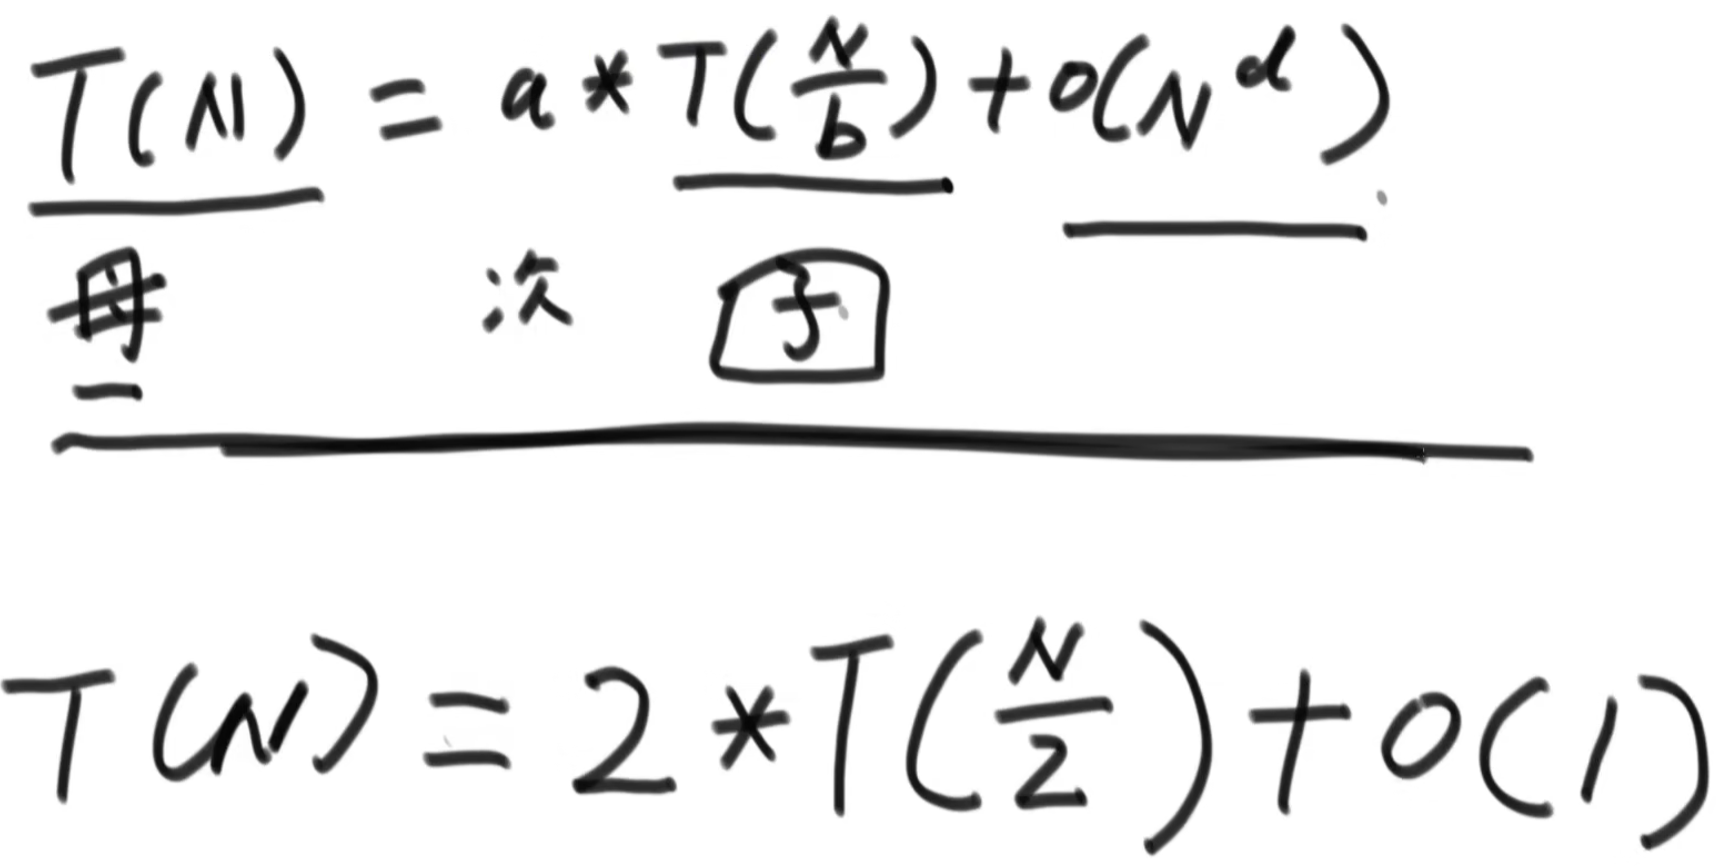 T(N) = a * T(N/b) + O(N^d)
母 次 子
T(N) = 2 * T(N/2) + O(1)